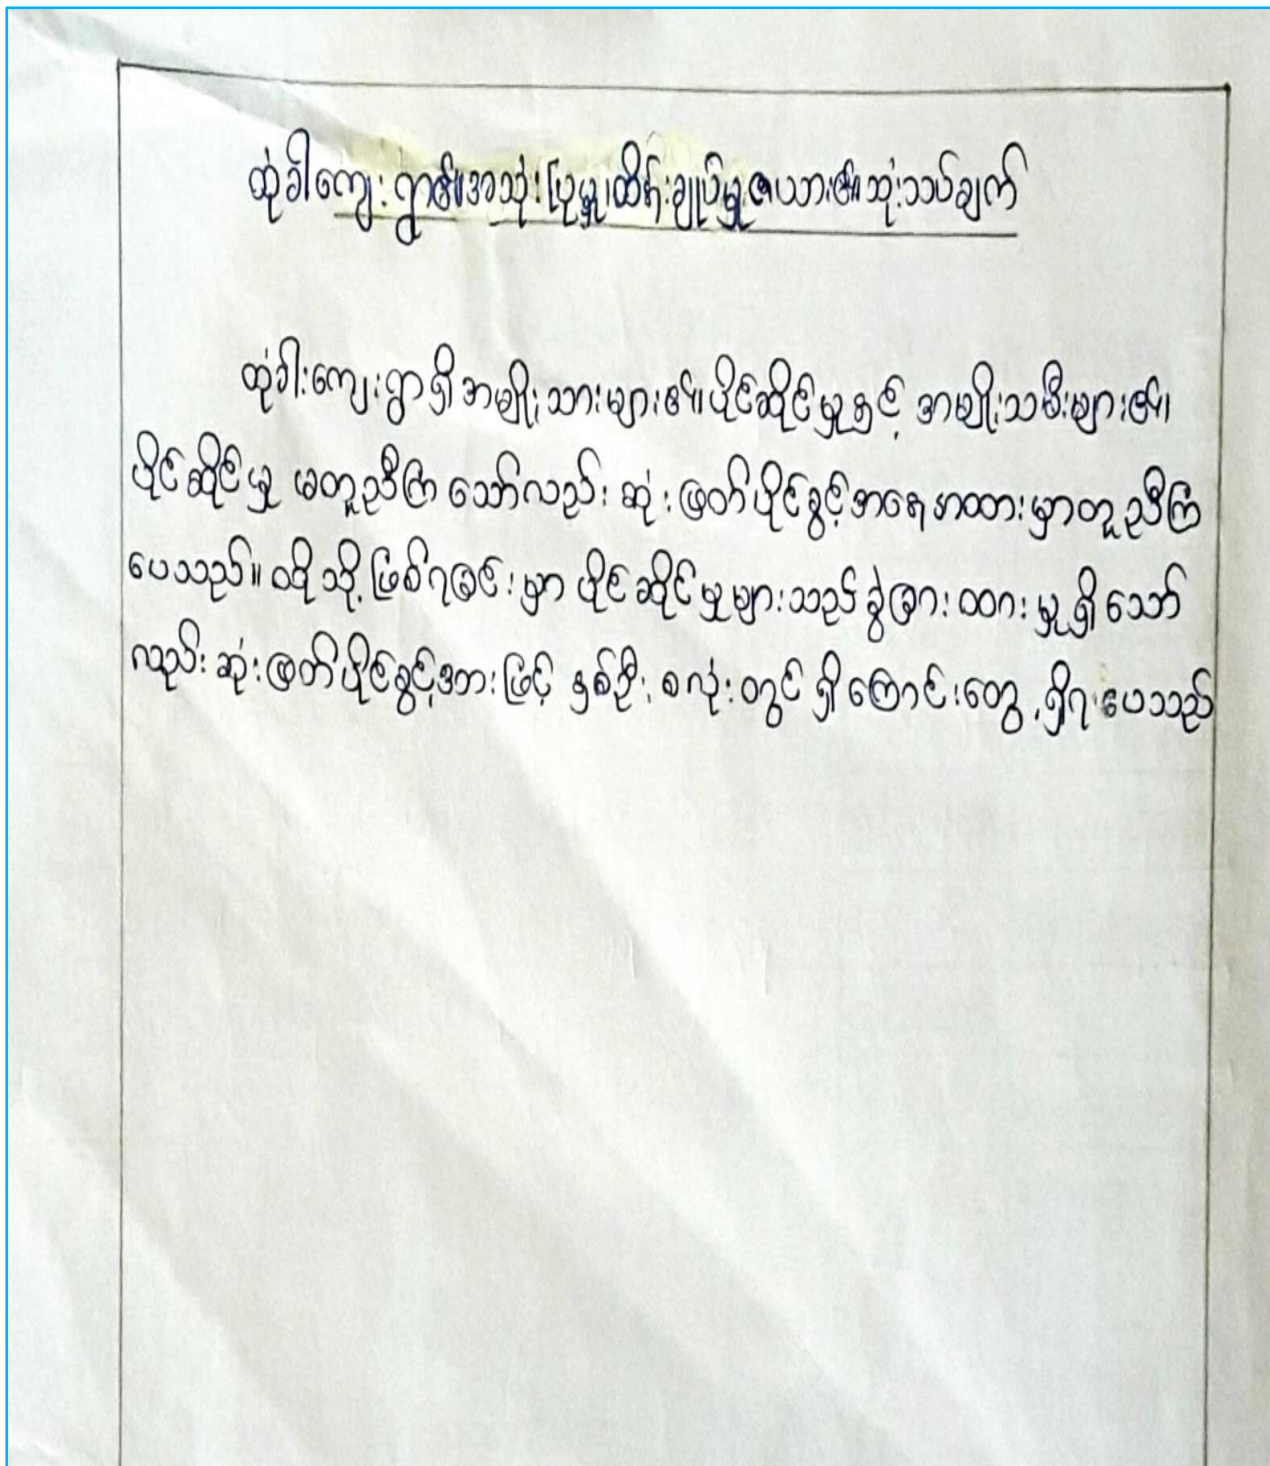 ထုံခါကျေးရွာ၏အသုံးပြုမှု၊ထိန်းချုပ်မှုဇယား၏သုံးသပ်ချက်
ထုံခါးကျေးရွာရှိ အမျိုးသားများ၏ပိုင်ဆိုင်မှုနှင့် အမျိုးသမီးများ၏
ပိုင်ဆိုင်မှု မတူညီကြ သော်လည်း ဆုံးဖြတ်ပိုင်ခွင့်အရေအထားမှာတူညီကြ
ပေသည်။ ထိုသို့ဖြစ်ရခြင်းမှာ ပိုင်ဆိုင်မှုများသည် ခွဲခြားထားမှုရှိသော်
လည်း ဆုံးဖြတ်ပိုင်ခွင့်အားဖြင့် နှစ်ဦးစလုံးတွင် ရှိကြောင်းတွေ့ရှိရပေသည်